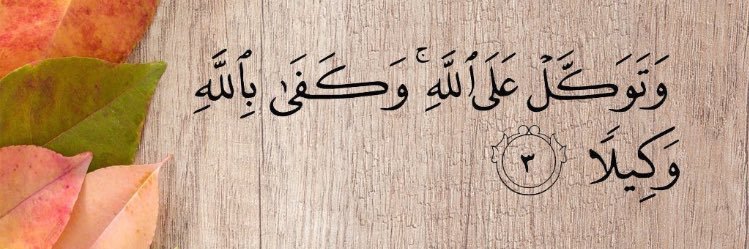 وَتَوَكَّلۡ عَلَى ٱللَّهِۚ وَكَفَىٰ بِٱللَّهِ
وَكِيلًا ٣